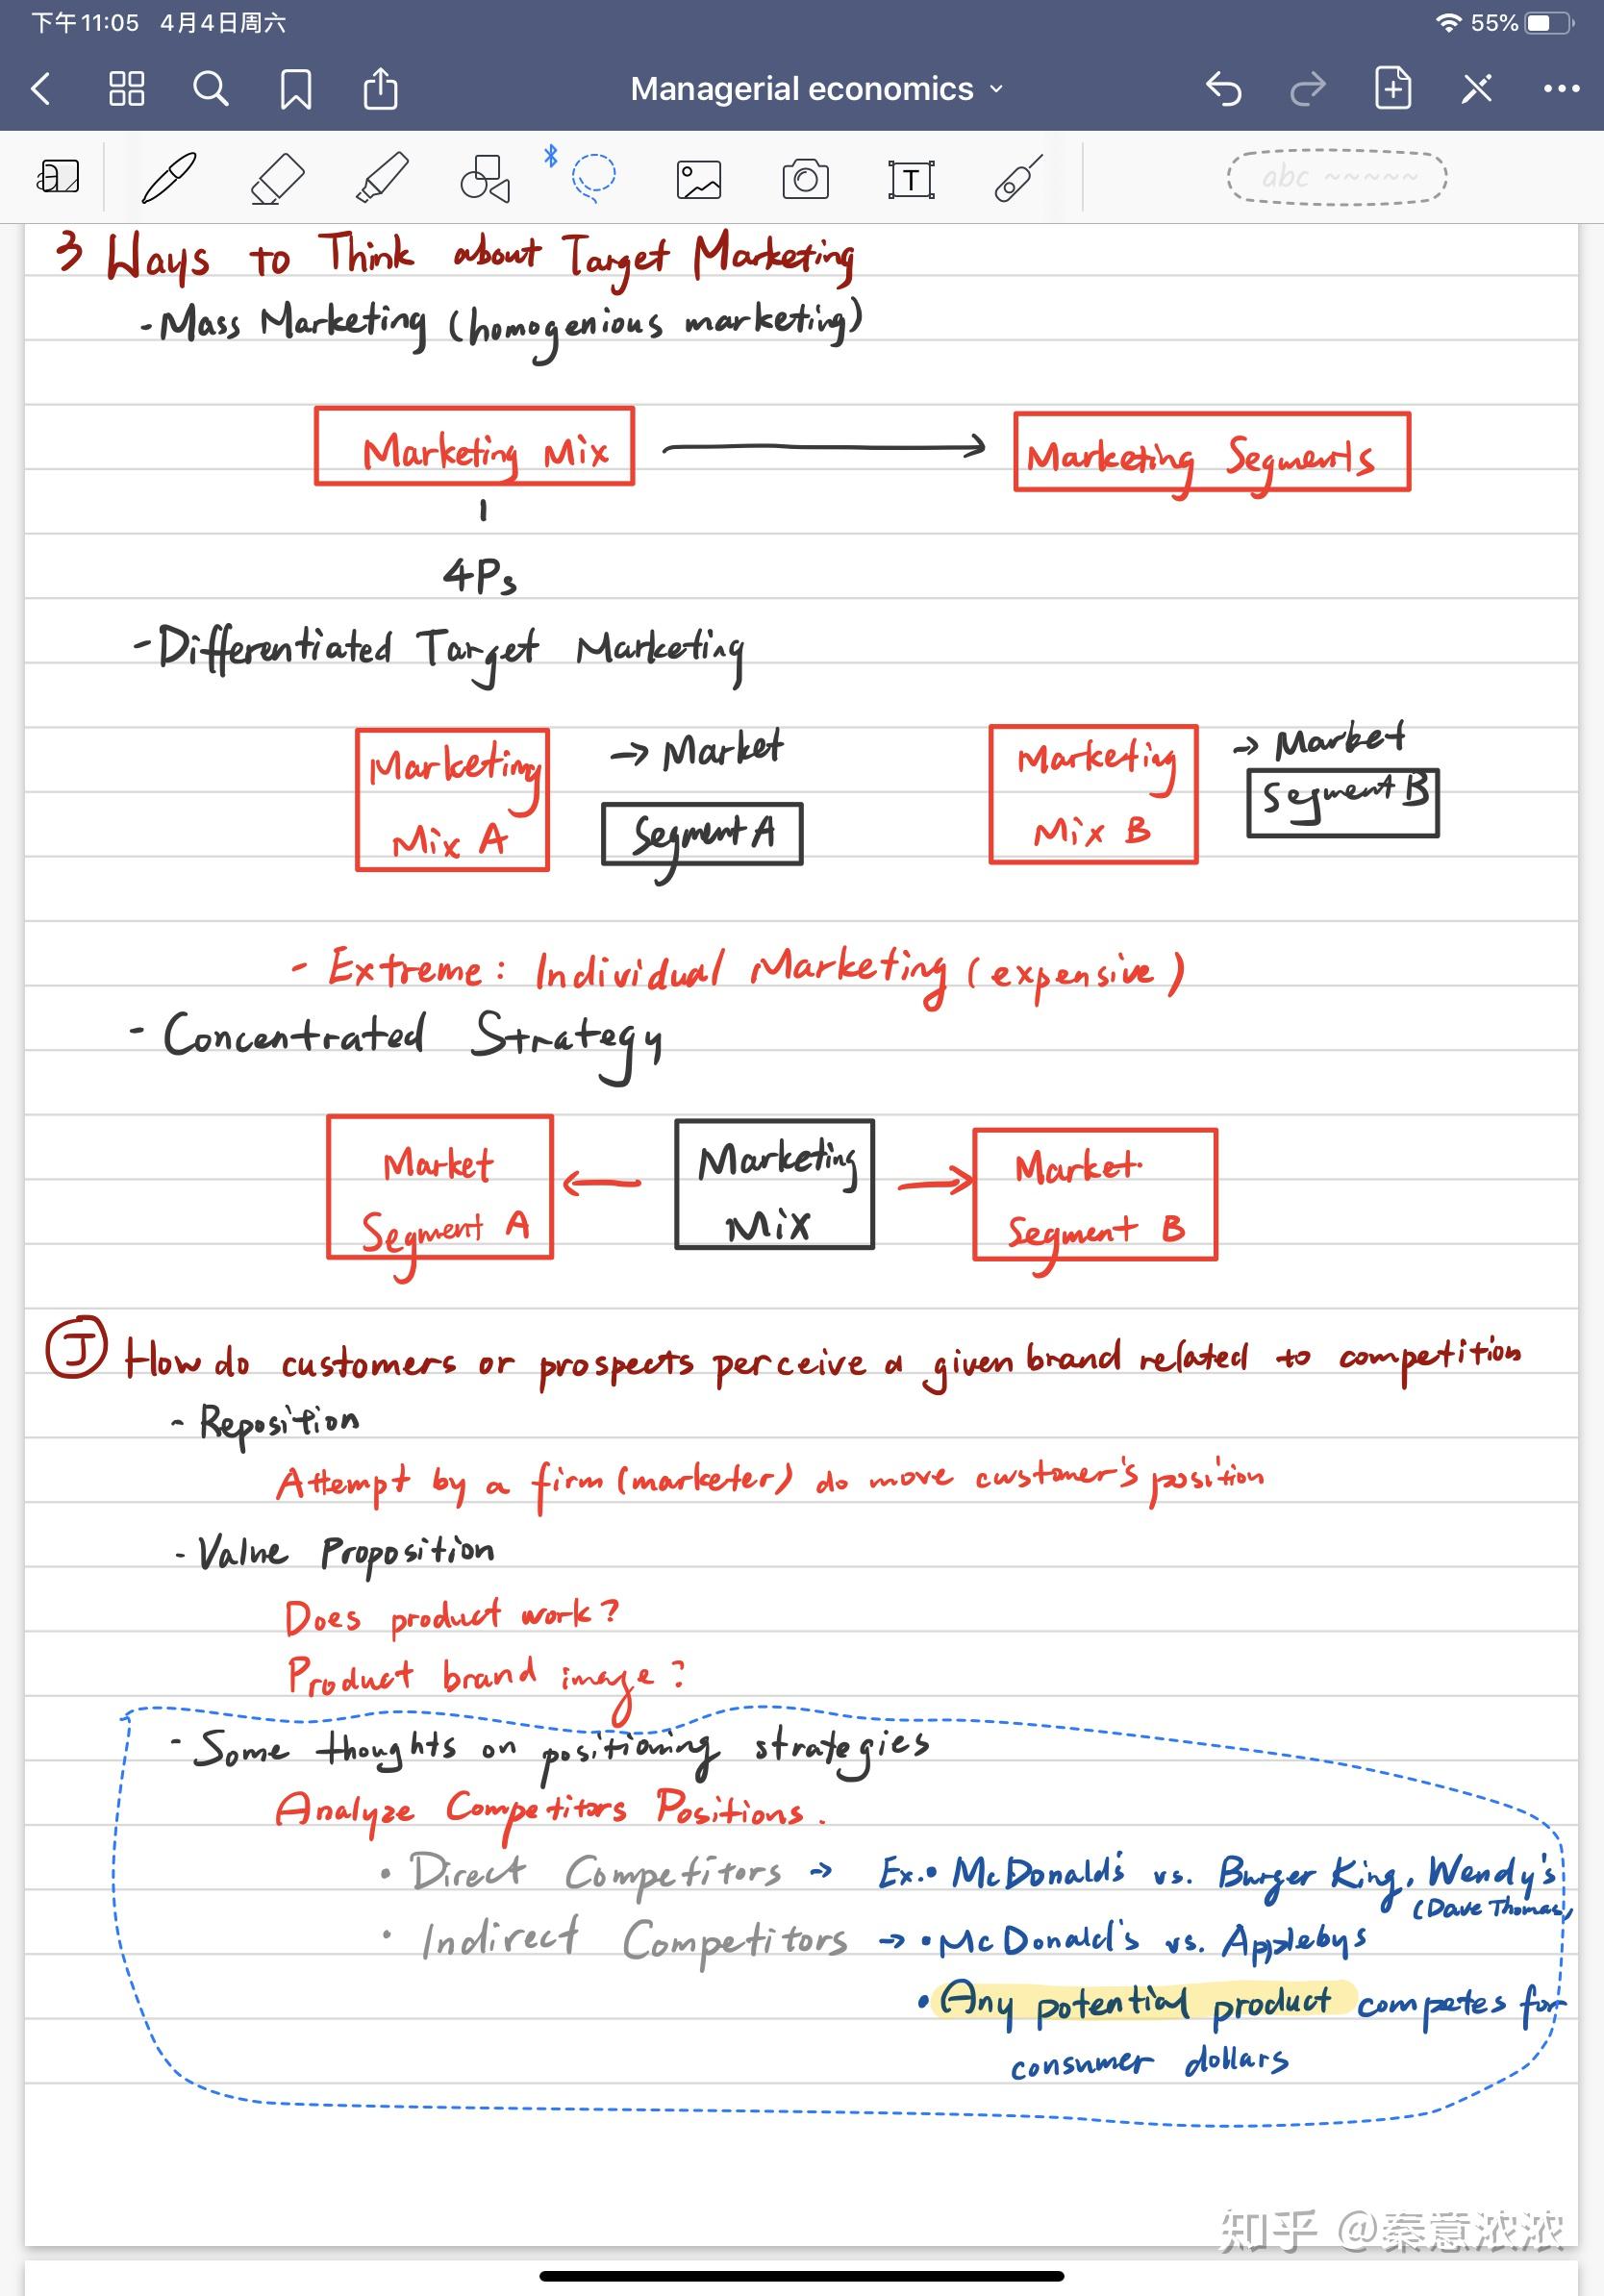 下午11:05 4月4日周六
55%
Managerial economics
T
abc
3 Ways to Think about Target Marketing
- Mass Marketing (homogenious marketing)
Marketing Mix → Marketing Segments
4Ps
- Differentiated Target Marketing
Marketing → Market Marketing → Market
Mix A Segment A Mix B Segment B
- Extreme: Individual Marketing (expensive)
- Concentrated Strategy
Market ← Marketing → Market
Segment A Mix Segment B
J How do customers or prospects perceive a given brand related to competition
- Reposition
Attempt by a firm (marketer) do move customer's position
- Value Proposition
Does product work?
Product brand image?
- Some thoughts on positioning strategies
Analyze Competitors Positions.
• Direct Competitors → Ex. • McDonald's vs. Burger King, Wendy's
(Dave Thomas)
• Indirect Competitors → • McDonald's vs. Applebys
• Any potential product competes for
consumer dollars
知乎 @秦意浓浓